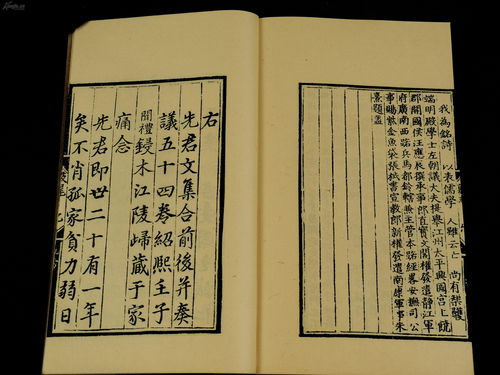 我為銘詩 以表儒學 人雖云亡 尚有榘矱
端明殿學士左朝議大夫提舉江州太平興國宮上饒
郡開國侯汪應辰撰承事郎直寶文閣權發遣靜江軍
府廣南西路兵馬都鈐轄兼主管本路經略安撫司公
事賜紫金魚袋張栻書宣教郎新權發遣南康軍事朱
熹題蓋
右
先君文集合前後并奏
議五十四卷紹熙壬子
開禮鋟木江陵歸藏于家
痛念
先君即世二十有一年
矣不肖孤家貧力弱日